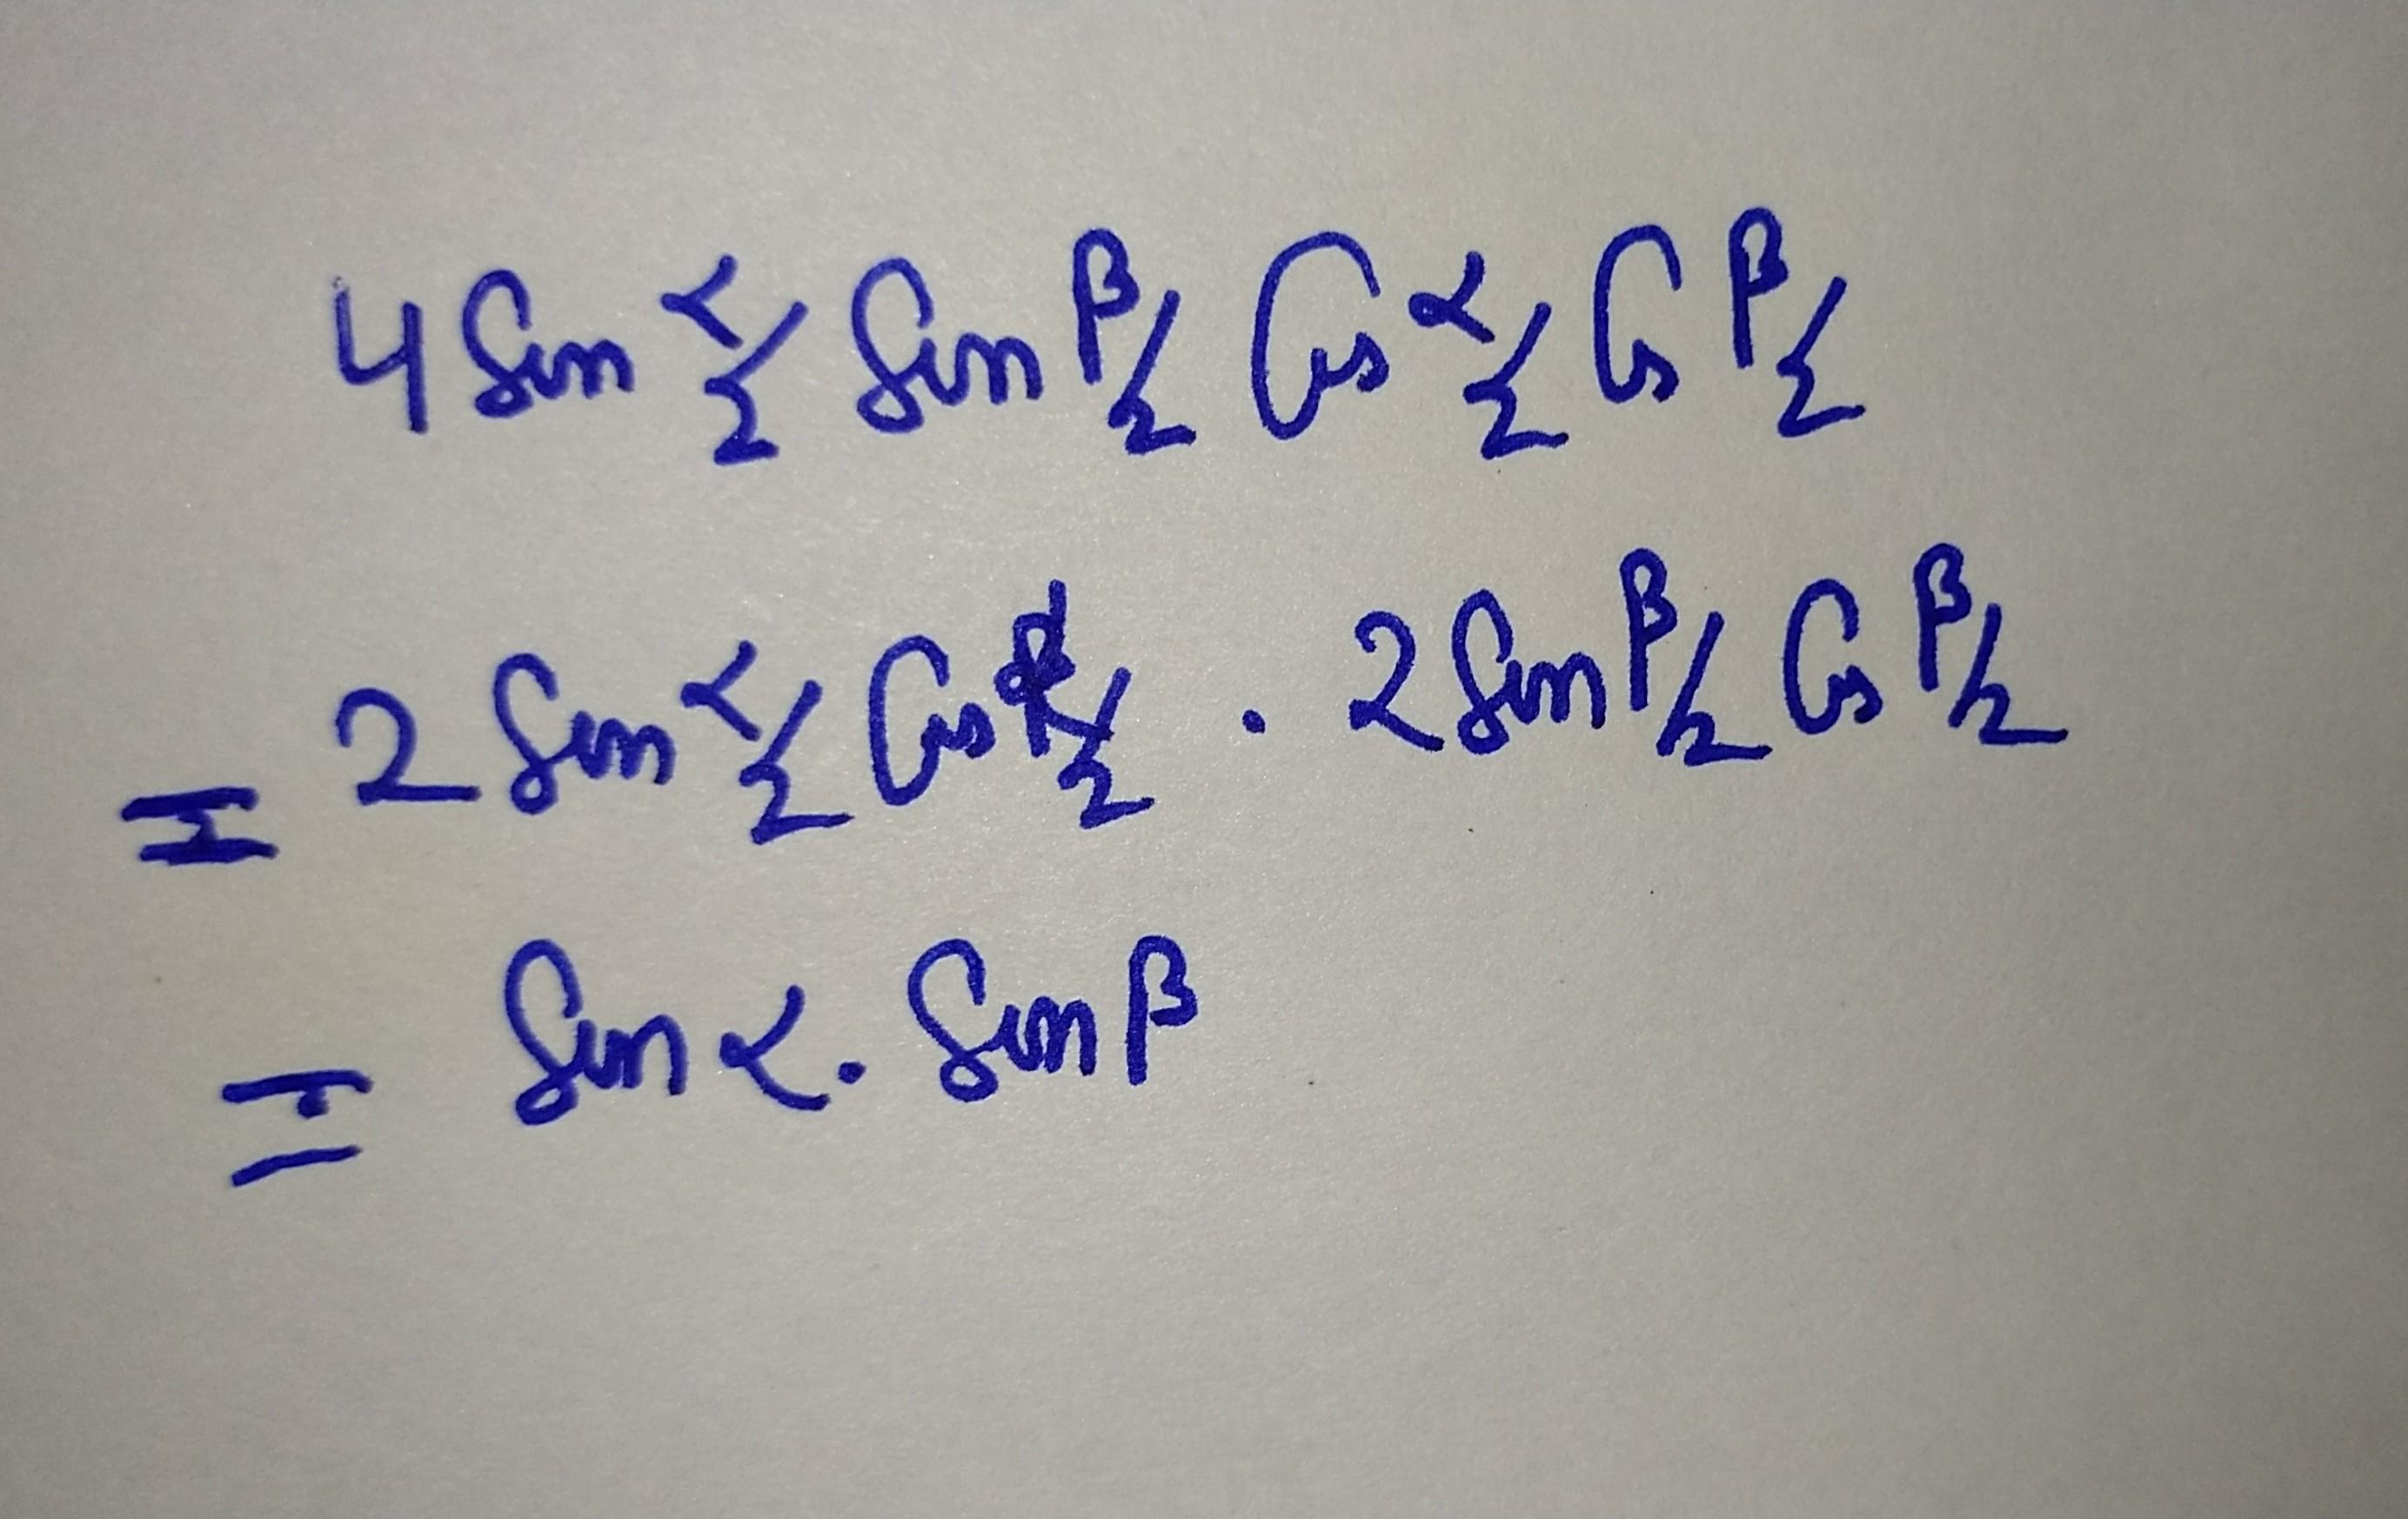 4 Sin α/2 Sin β/2 Cos α/2 Cos β/2
= 2 Sin α/2 Cos α/2 . 2 Sin β/2 Cos β/2
= Sin α . Sin β